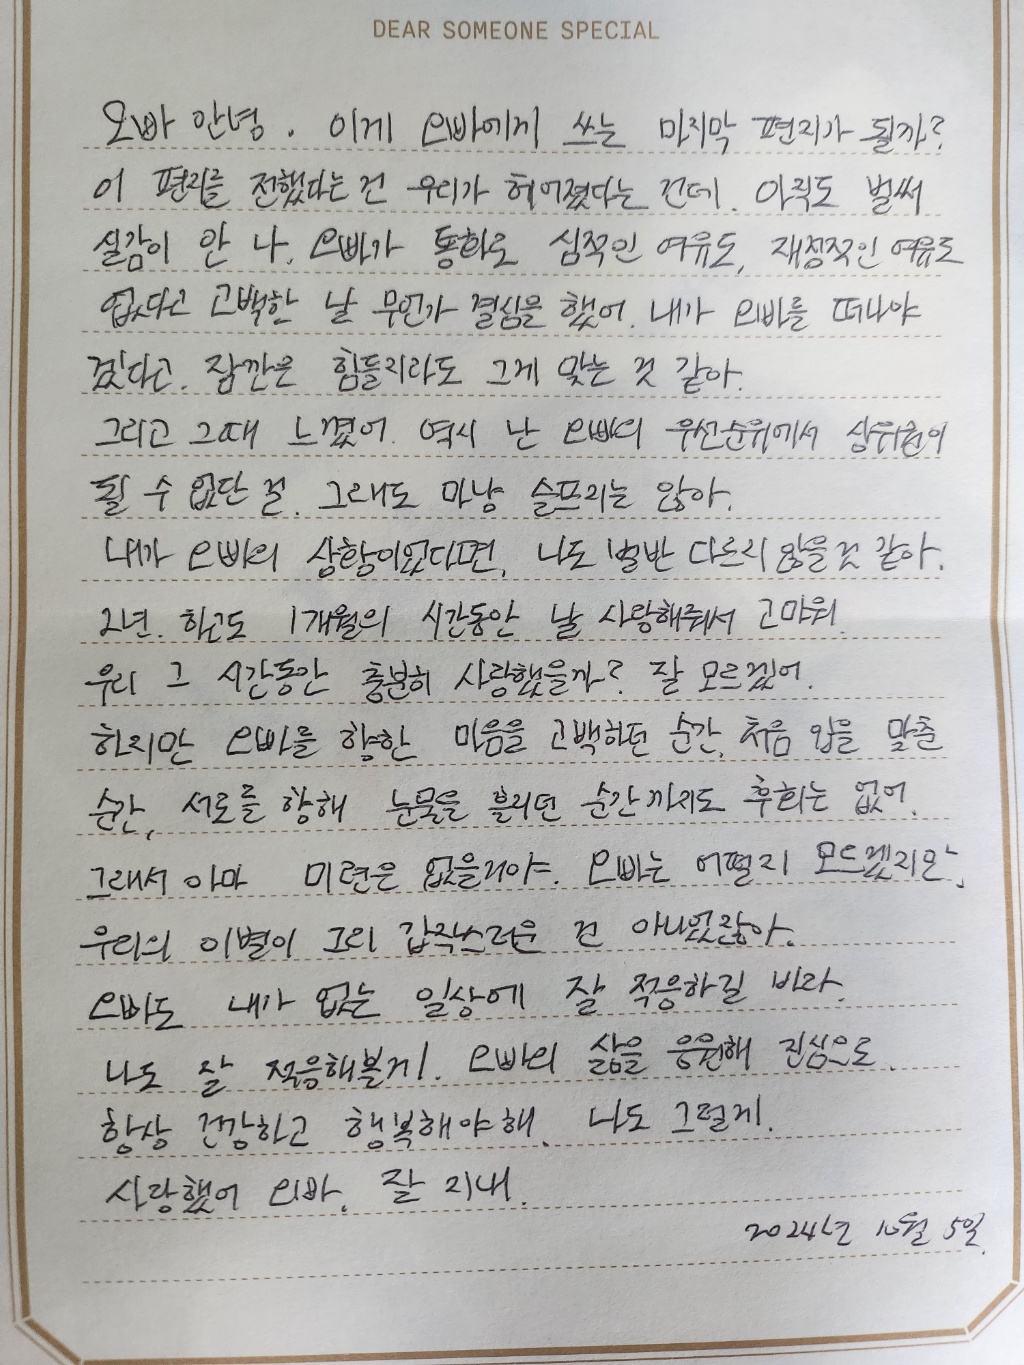 DEAR SOMEONE SPECIAL
오빠 안녕. 이게 오빠에게 쓰는 마지막 편지가 될까?
이 편지를 전했다는 건 우리가 헤어졌다는 건데. 아직도 벌써
실감이 안 나. 오빠가 통화로 심적인 여유도, 재정적인 여유도
없다고 고백한 날 무언가 결심을 했어. 내가 오빠를 떠나야
겠다고. 잠깐은 힘들지라도 그게 맞는 것 같아.
그리고 그때 느꼈어. 역시 난 오빠의 우선순위에서 상위권이
될 수 없단 걸. 그래도 마냥 슬프지는 않아.
내가 오빠의 상황이었다면, 나도 별반 다르지 않을 것 같아.
2년. 하고도 1개월의 시간동안 날 사랑해줘서 고마워.
우리 그 시간동안 충분히 사랑했을까? 잘 모르겠어.
하지만 오빠를 향한 마음을 고백하던 순간, 처음 입을 맞춘
순간, 서로를 향해 눈물을 흘리던 순간까지도 후회는 없어.
그래서 아마 미련은 없을거야. 오빠는 어떨지 모르겠지만,
우리의 이별이 그리 갑작스러운 건 아니었잖아.
오빠도 내가 없는 일상에 잘 적응하길 바라.
나도 잘 적응해볼게. 오빠의 삶을 응원해 진심으로.
항상 건강하고 행복해야 해. 나도 그럴게.
사랑했어 오빠. 잘 지내.
2024년 10월 5일.